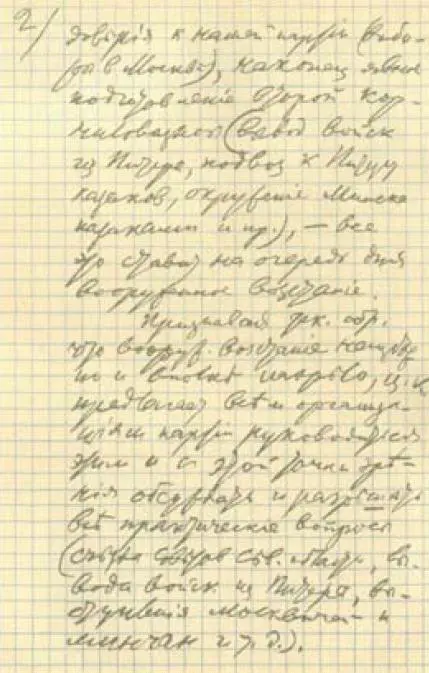 2/
довѣрія к нашей партіи (выбо-
ры в Москвѣ), наконец явное
подготовленіе второй кор-
ниловщины (вывод войск
из Питера, подвоз к Питеру
казаков, окруженіе Минска
казаками и пр.), — все
это ставит на очередь дня
вооруженное возстаніе.
Признавая т. обр.
что вооруж. возстаніе неизбѣж-
но и вполнѣ назрѣло, Ц.К.
предлагает всѣм организа-
ціям партіи руководиться
этим и с этой точки зрѣ-
нія обсуждать и разрѣшать
всѣ практическіе вопросы
(съѣзда Совѣтов Сѣв. области, вы-
вода войск из Питера, вы-
ступленія москвичей и
минчан и т.д.).